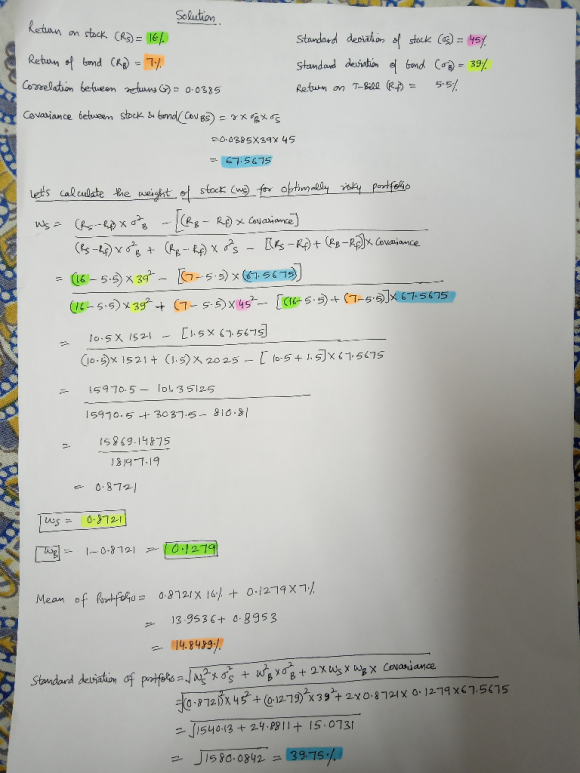 Solution
Return on stock (RS) = 16%
Standard deviation of stock (σS) = 45%
Return of bond (RB) = 7%
Standard deviation of bond (σB) = 39%
Correlation between returns (r) = 0.0385
Return on T-Bill (Rf) = 5.5%
Covariance between stock & bond (CovBS) = r × σB × σS
= 0.0385×39×45
= 67.5675
Let's calculate the weight of stock (WS) for optimally risky portfolio
WS = (RS-Rf) × σ²B - [(RB - Rf) × Covariance]
(RS-Rf) × σ²B + (RB-Rf) × σ²S - [(RS-Rf) + (RB-Rf)] × Covariance
= (16 - 5.5) × 39² - [(7-5.5) × (67.5675)]
(16 - 5.5) × 39² + (7-5.5) × 45² - [(16-5.5) + (7-5.5)] × 67.5675
= 10.5 × 1521 - [1.5 × 67.5675]
(10.5) × 1521 + (1.5) × 2025 - [10.5 + 1.5] × 67.5675
= 15970.5 - 101.35125
15970.5 + 3037.5 - 810.81
= 15869.14875
18197.19
= 0.8721
WS = 0.8721
WB = 1-0.8721 = 0.1279
Mean of Portfolio = 0.8721 × 16% + 0.1279 × 7%
= 13.9536 + 0.8953
= 14.8489%
Standard deviation of portfolio = √W²S × σ²S + W²B × σ²B + 2 × WS × WB × Covariance
= √(0.8721)² × 45² + (0.1279)² × 39² + 2 × 0.8721 × 0.1279 × 67.5675
= √1540.13 + 24.8811 + 15.0731
= √1580.0842 = 39.75%